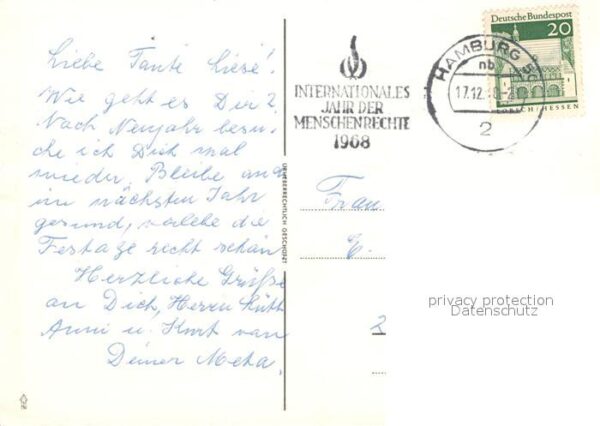 Liebe Tante Liese!
Wie geht es Dir?
Nach Neujahr besu-
che ich Dich mal
wieder. Bleibe auch
im nächsten Jahr
gesund, verlebe die
Festage recht schön
Herzliche Grüße
an Dich, Herrn Küth
Anni u. Kurt von
Deiner Meta.
URHEBERRECHTLICH GESCHÜTZT
INTERNATIONALES
JAHR DER
MENSCHENRECHTE
1968
HAMBURG
nb
17.12.
2
Deutsche Bundespost
20
HESSEN
Frau
E.
2
privacy protection
Datenschutz